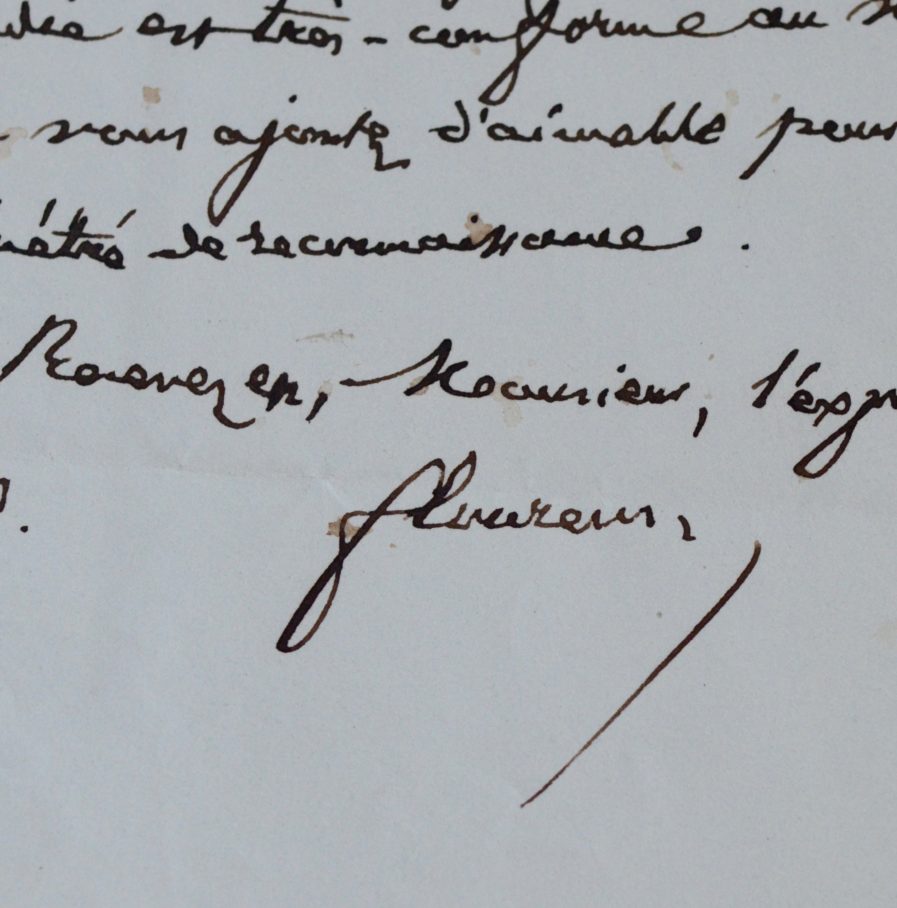 est très-conforme au
vous ajoutez d'aimable pour
de reconnaissance.
Recevez en, Monsieur, l'exp
flourens,